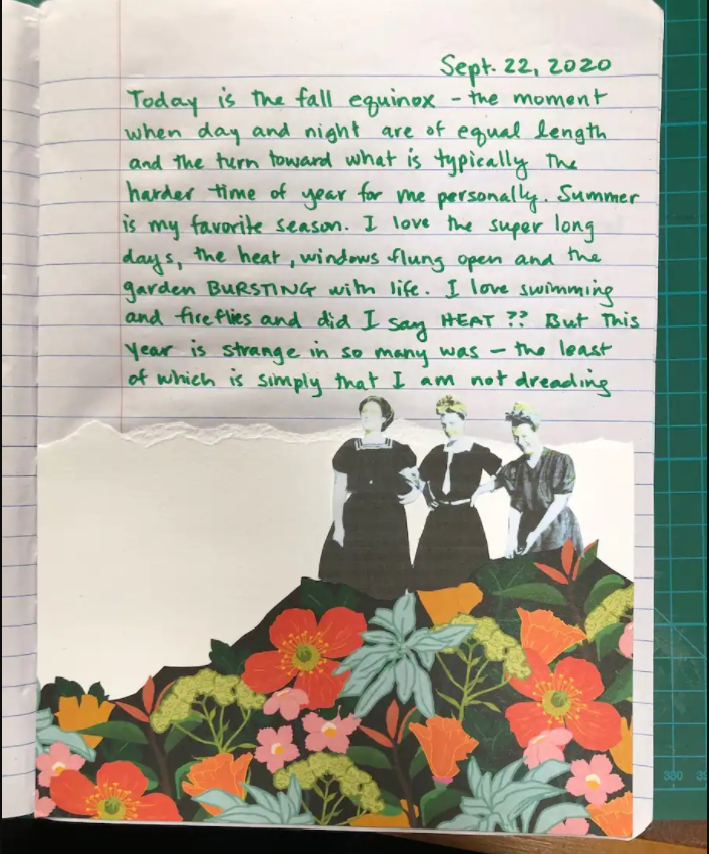 Sept. 22, 2020
Today is the fall equinox – the moment
when day and night are of equal length
and the turn toward what is typically the
harder time of year for me personally. Summer
is my favorite season. I love the super long
days, the heat, windows flung open and the
garden BURSTING with life. I love swimming
and fireflies and did I say HEAT ?? But this
year is strange in so many was – the least
of which is simply that I am not dreading
380